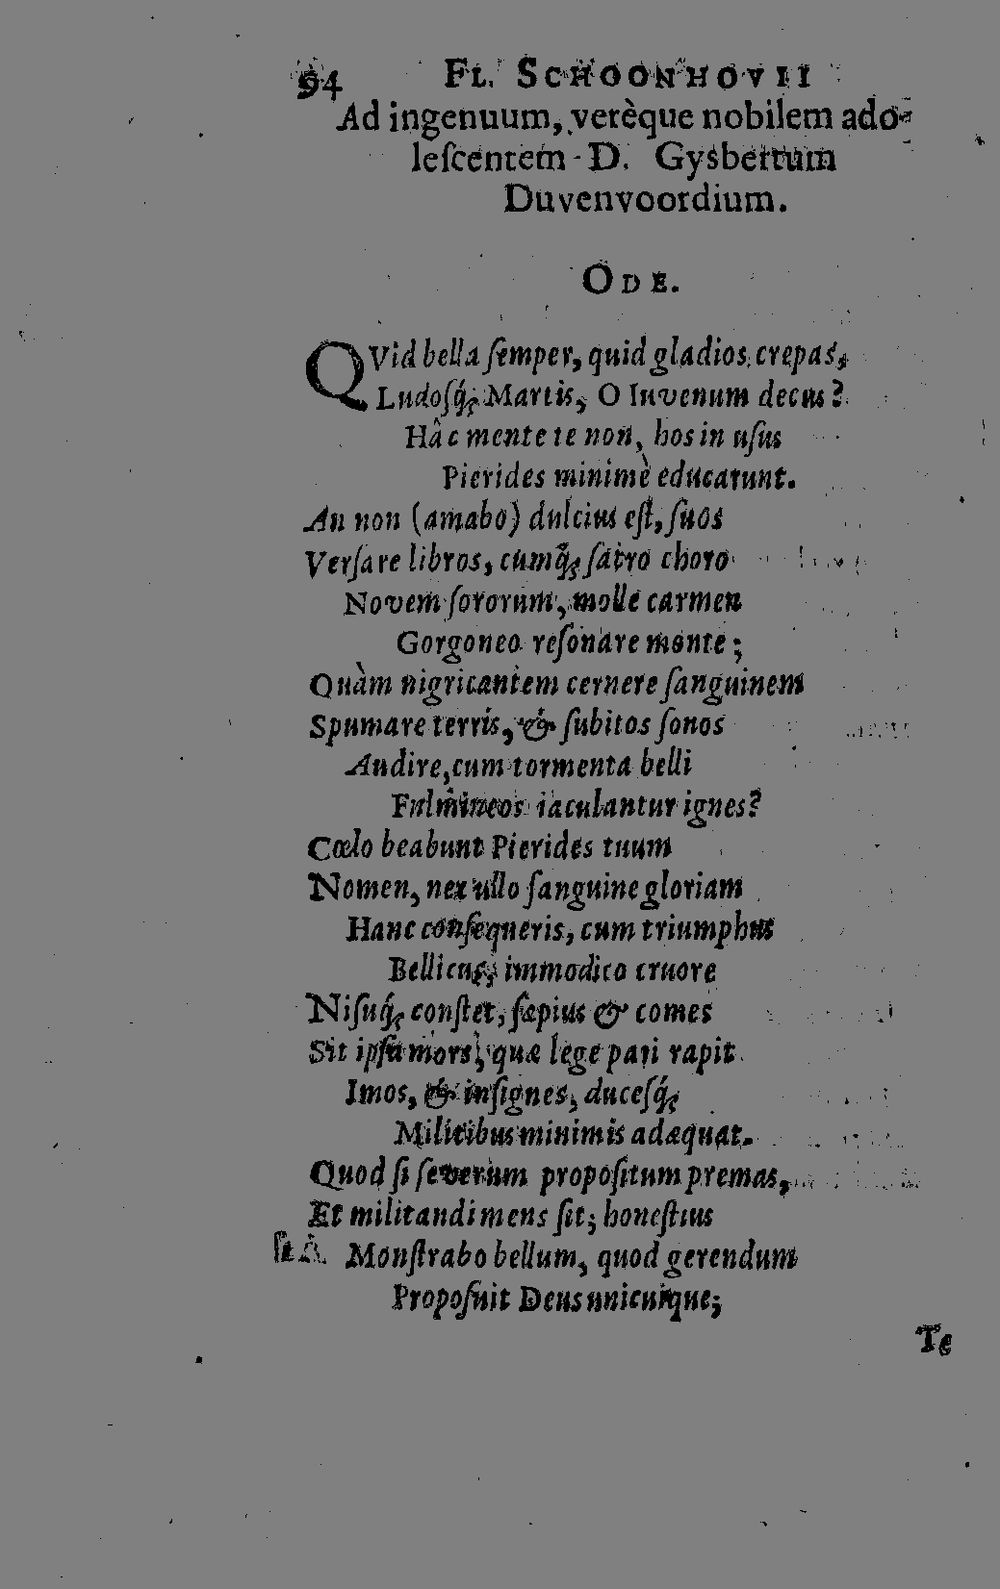 94 FL. SCHOONHOVII
Ad ingenuum, verèque nobilem ado-
leſcentem D. Gysbertum
Duvenvoordium.
ODE.
QVid bella ſemper, quid gladios crepas,
Ludoſq́; Martis, O Iuvenum decus?
Hâc mente te non, hos in uſus
Pierides minimè educarunt.
An non (amabo) dulcius eſt, ſuos
Verſare libros, cumq́; ſacro choro
Novem ſororum, molle carmen
Gorgoneo reſonare monte;
Quàm nigricantem cernere ſanguinem
Spumare terris, & ſubitos ſonos
Audire, cum tormenta belli
Fulmineos iaculantur ignes?
Cœlo beabunt Pierides tuum
Nomen, nex ullo ſanguine gloriam
Hanc conſequeris, cum triumphus
Bellicus, immodico cruore
Niſuq́; conſtet, ſæpius & comes
Sit ipſa mors, quæ lege pari rapit
Imos, & inſignes, duceſq́;
Militibus minimis adæquat.
Quod ſi ſeverum propoſitum premas,
Et militandi mens ſit; honeſtius
Monſtrabo bellum, quod gerendum
Propoſuit Deus unicuique;
Te